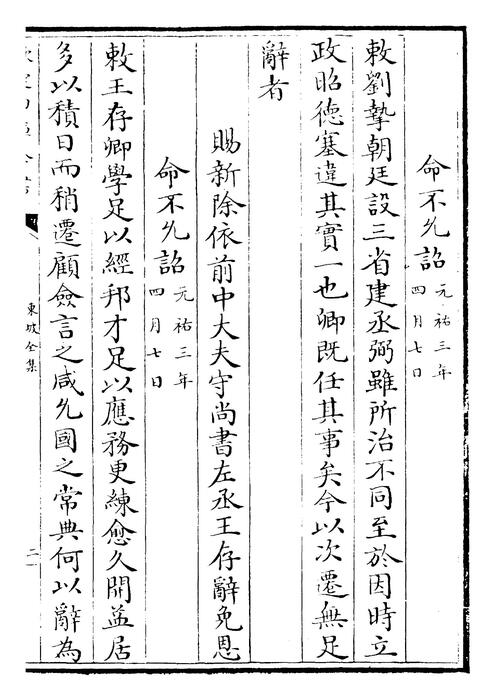 命不允詔元祐三年四月七日
敕劉摯朝廷設三省建丞弼雖所治不同至於因時立
政昭德塞違其實一也卿既任其事矣今以次遷無足
辭者
賜新除依前中大夫守尚書左丞王存辭免恩
命不允詔元祐三年四月七日
敕王存卿學足以經邦才足以應務更練愈久開益居
多以積日而稍遷顧僉言之咸允國之常典何以辭為
東坡全集
二